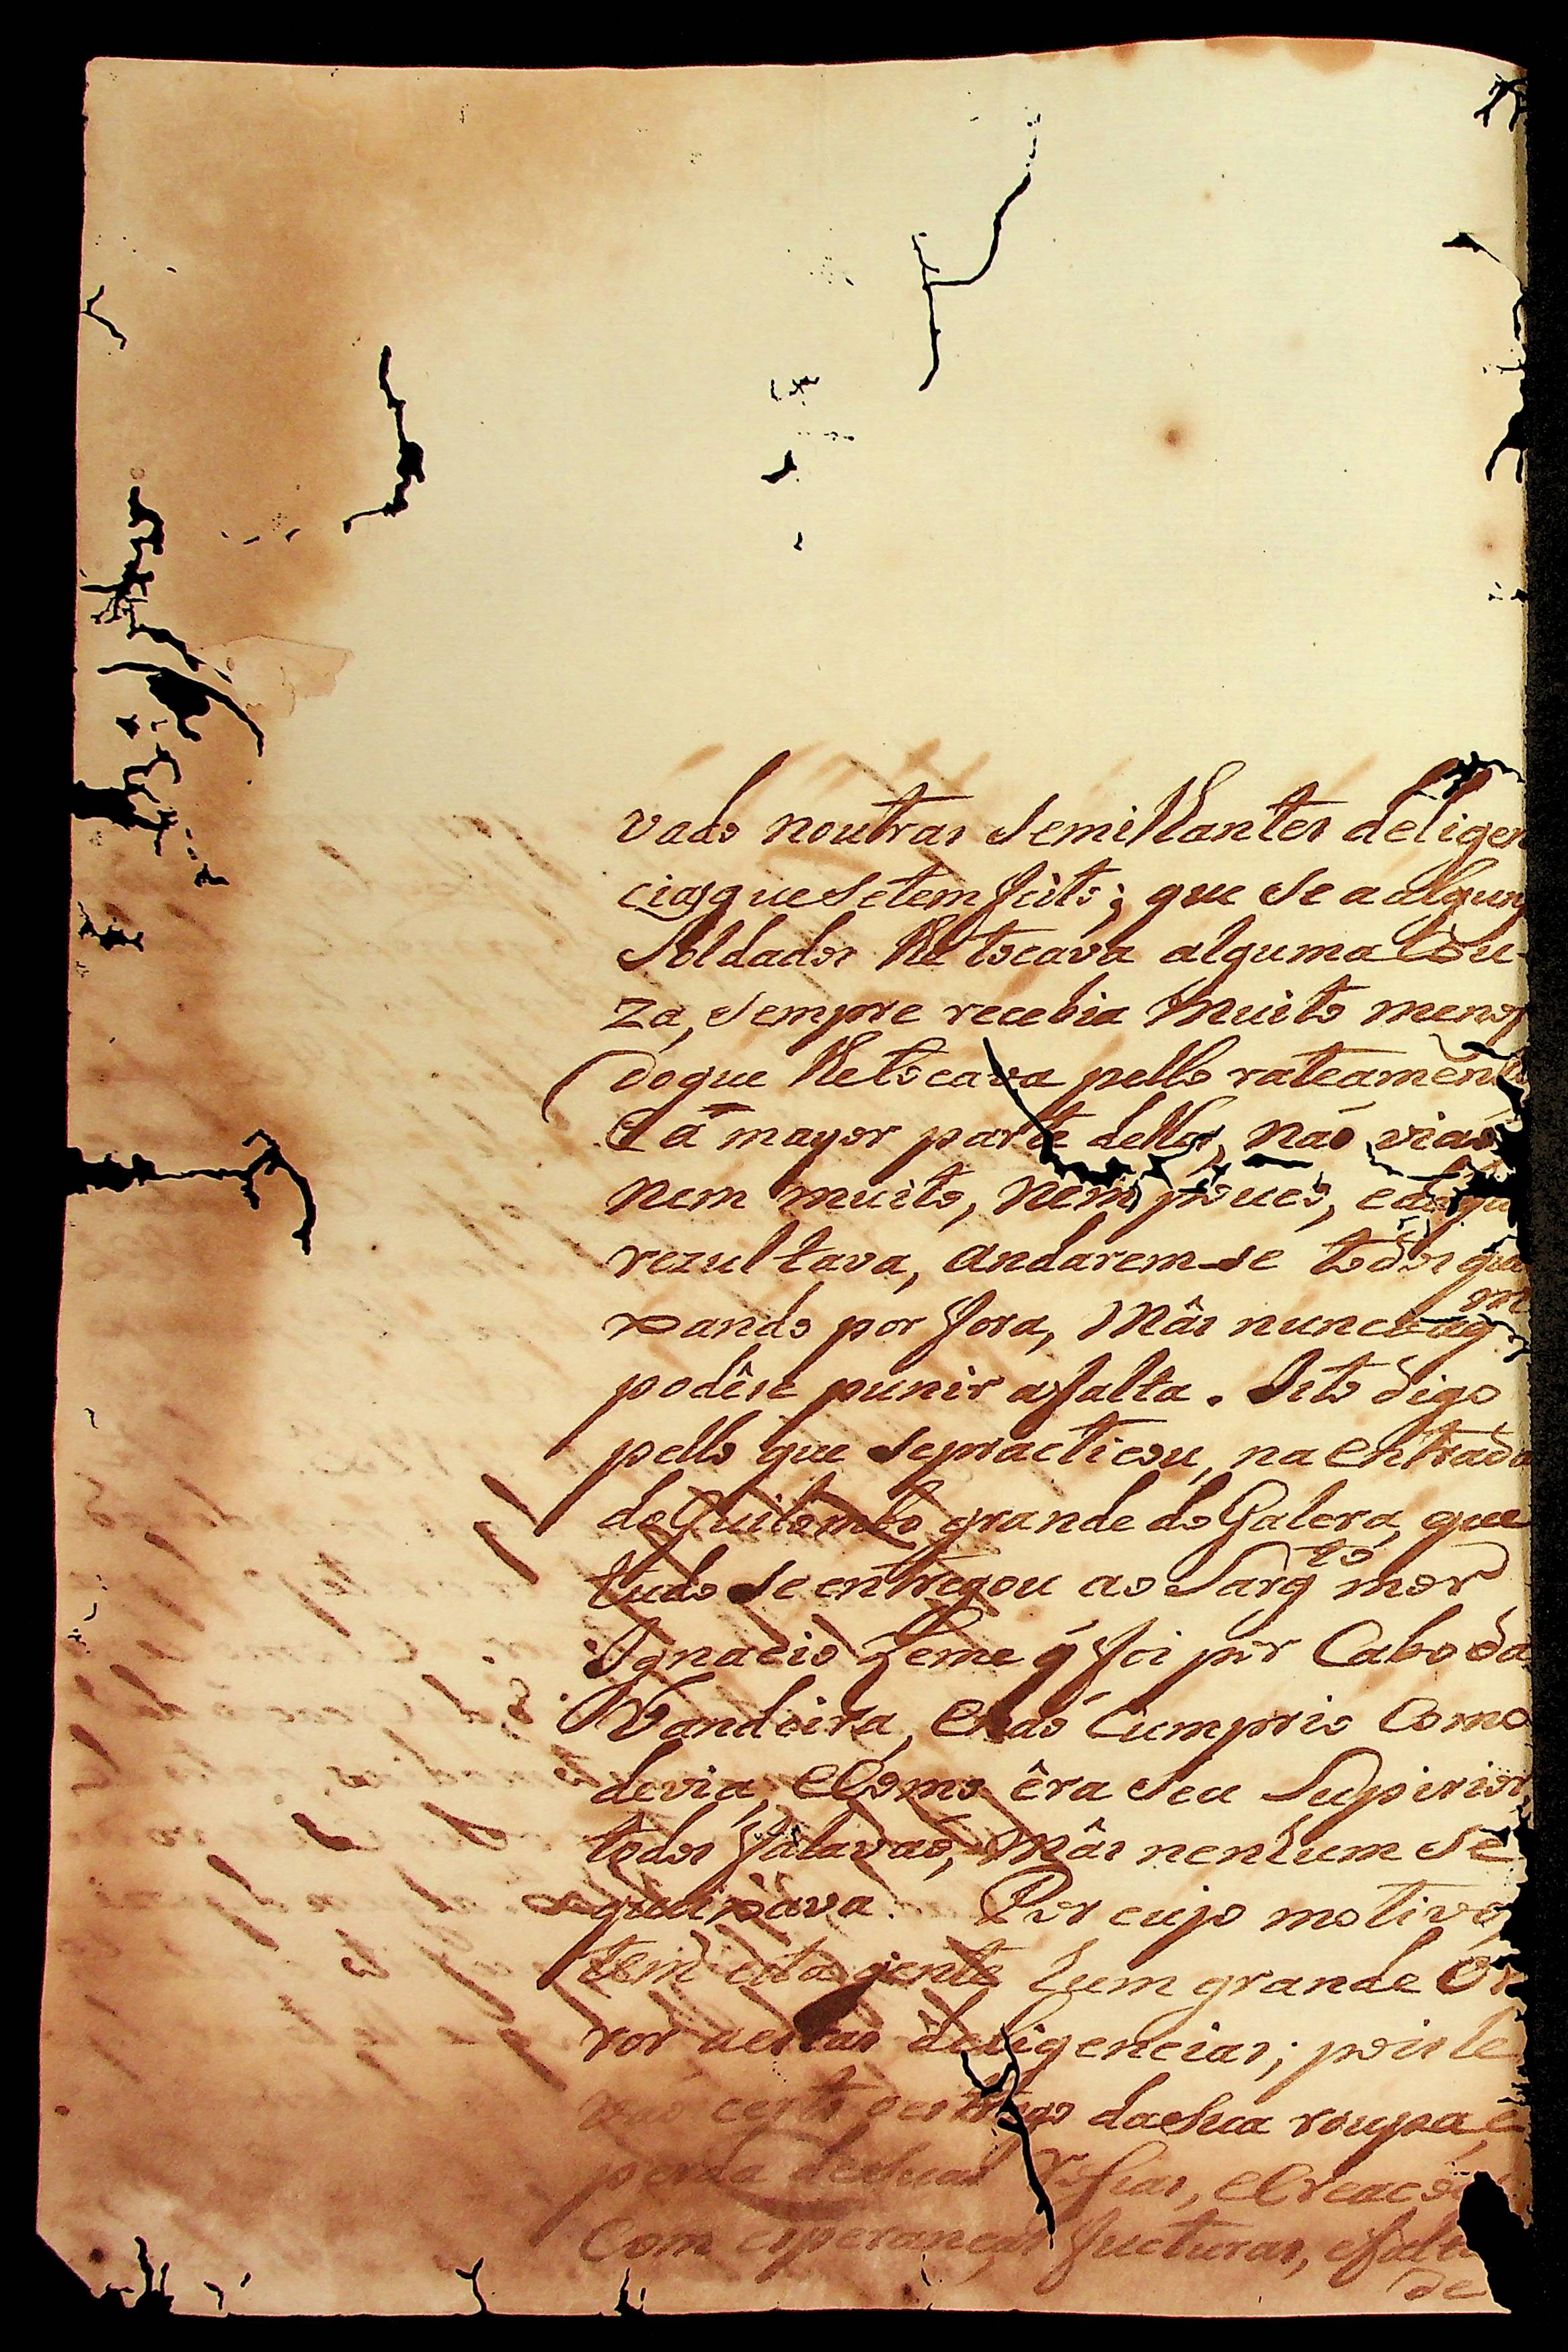 vado noutras Semilhantes deligen
cias que Setem feito; que Se a algun
Soldados lhe tocava alguma Cou-
za, Sempre recebia muito menos
doque lhe tocava pello rateament
E a mayor parte delles, não vião
nem muito, nem pouco, e do q
rezultava, andarem-se todos quei
xando por fora, Mâs nunca
podêse punir afalta. Isto digo
pello que Sepracticou, na entrada
do Quilombo grande do Galera, que
tudo Se entregou ao Sargto mor
Ignacio Leme q̃ foi por Cabo da
Bandeira, e não Cumprio Como
devia, e Como êra Seu Superior
todos falavão, Mâs nenhum Se
queixava. Por cujo motivo,
tem esta gente hum grande Or
ror aestas deligencias; pois le
vão certo o estrago dasua roupa, e
perda desuas Rosias, e Creação
Com esperanças fucturas, efalta
de